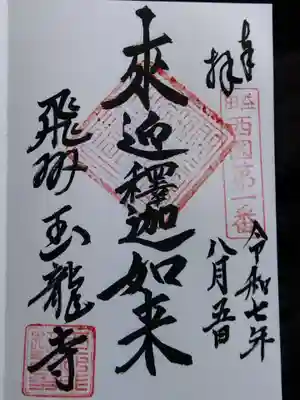 奉拝
西国第一番
令和七年
八月五日
來迎釋迦如来
飛州玉龍寺